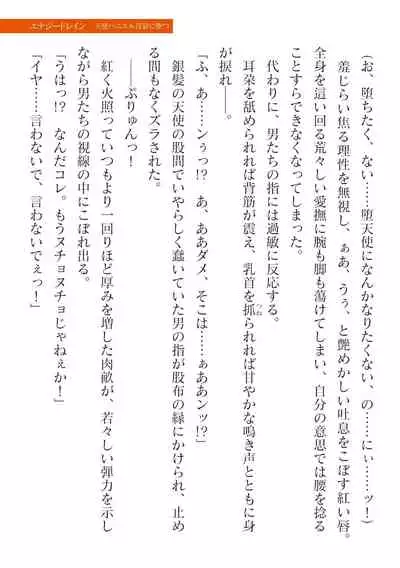 エナジードレイン 天使ハニエル
(お、堕ちたく、ない……堕天使になんかなりたくない、の……にぃ……ッ！)
羞じらい焦る理性を無視し、ぁあ、うぅ、と艶めかしい吐息をこぼす紅い唇。
全身を這い回る荒々しい愛撫に腕も脚も蕩けてしまい、自分の意思では腰を捻る
ことすらできなくなってしまった。
代わりに、男たちの指には過敏に反応する。
耳朶を舐められれば背筋が震え、乳首を抓られれば甘やかな鳴き声とともに身
つね
が捩れ――。
「ふ、あ……ンぅっ!?　あ、ああダメ、そこは……ぁああンッ!?」
銀髪の天使の股間でいやらしく蠢いていた男の指が股布の縁にかけられ、止め
る間もなくズラされた。
――ぷりゅんっ！
紅く火照っていつもより一回りほど厚みを増した肉畝が、若々しい弾力を示し
ながら男たちの視線の中にこぼれ出る。
「うはっ!?　なんだコレ。もうヌチョヌチョじゃねぇか！」
「イヤ……言わないで、言わないでぇっ！」